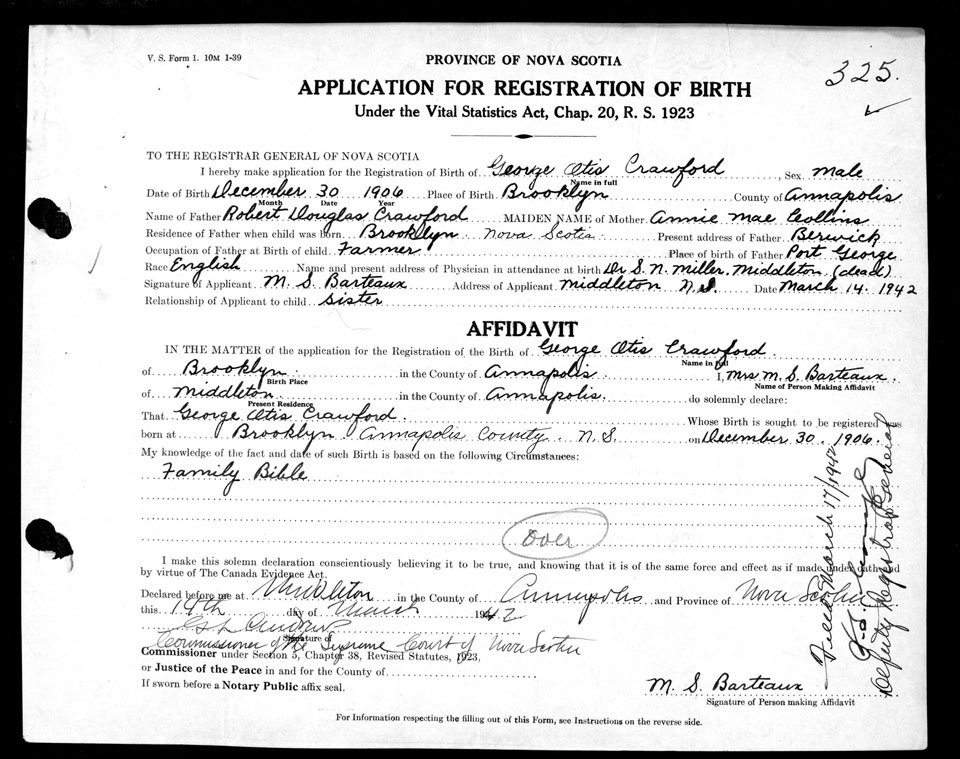 V. S. Form 1. 10M 1-39
PROVINCE OF NOVA SCOTIA
325.
APPLICATION FOR REGISTRATION OF BIRTH
Under the Vital Statistics Act, Chap. 20, R. S. 1923
TO THE REGISTRAR GENERAL OF NOVA SCOTIA
I hereby make application for the Registration of Birth of George Otis Crawford Sex male
Name in full
Date of Birth December 30 1906 Place of Birth Brooklyn County of Annapolis
Month Date Year
Name of Father Robert Douglas Crawford MAIDEN NAME of Mother Annie Mae Collins
Residence of Father when child was born Brooklyn Nova Scotia Present address of Father Berwick
Occupation of Father at Birth of child Farmer Place of birth of Father Port George
Race English Name and present address of Physician in attendance at birth Dr S. N. Miller, Middleton (dead)
Signature of Applicant M. S. Barteaux Address of Applicant Middleton N.S. Date March 14. 1942
Relationship of Applicant to child Sister
AFFIDAVIT
IN THE MATTER of the application for the Registration of the Birth of George Otis Crawford
Name in full
of Brooklyn in the County of Annapolis I, Mrs M. S. Barteaux
Birth Place Name of Person Making Affidavit
of Middleton in the County of Annapolis. do solemnly declare:
Present Residence
That George Otis Crawford Whose Birth is sought to be registered was
born at Brooklyn Annapolis County N.S. on December 30, 1906.
My knowledge of the fact and date of such Birth is based on the following Circumstances:
Family Bible
over
I make this solemn declaration conscientiously believing it to be true, and knowing that it is of the same force and effect as if made under oath and
by virtue of The Canada Evidence Act.
Declared before me at Middleton in the County of Annapolis and Province of Nova Scotia
this 14th day of March 1942
Signature of
Commissioner of the Supreme Court of Nova Scotia
Commissioner under Section 5, Chapter 38, Revised Statutes, 1923,
or Justice of the Peace in and for the County of
If sworn before a Notary Public affix seal.
M. S. Barteaux
Signature of Person making Affidavit
For Information respecting the filling out of this Form, see Instructions on the reverse side.
Filed March 17/1942
Deputy Registrar General